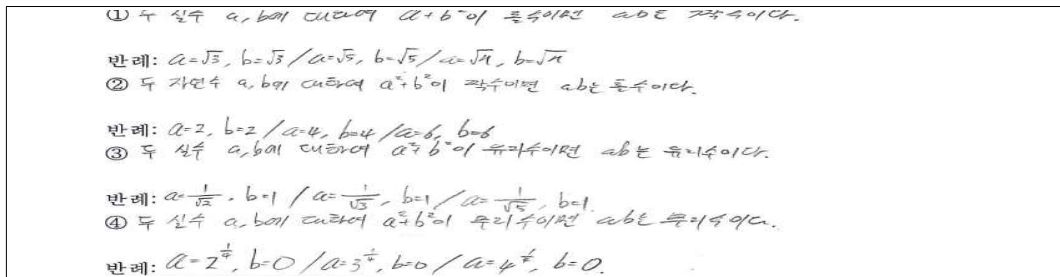 ① 두 실수 a, b에 대하여 a²+b²이 홀수이면 ab는 짝수이다.
반례: a=√3, b=√3 / a=√5, b=√5 / a=√π, b=√π
② 두 자연수 a, b에 대하여 a²+b²이 짝수이면 ab는 홀수이다.
반례: a=2, b=2 / a=4, b=4 / a=6, b=6
③ 두 실수 a, b에 대하여 a²+b²이 유리수이면 ab는 유리수이다.
반례: a=1/√2, b=1 / a=1/√3, b=1 / a=1/√5, b=1.
④ 두 실수 a, b에 대하여 a²+b²이 무리수이면 ab는 무리수이다.
반례: a=2^¼, b=0 / a=3^¼, b=0 / a=4^¼, b=0.